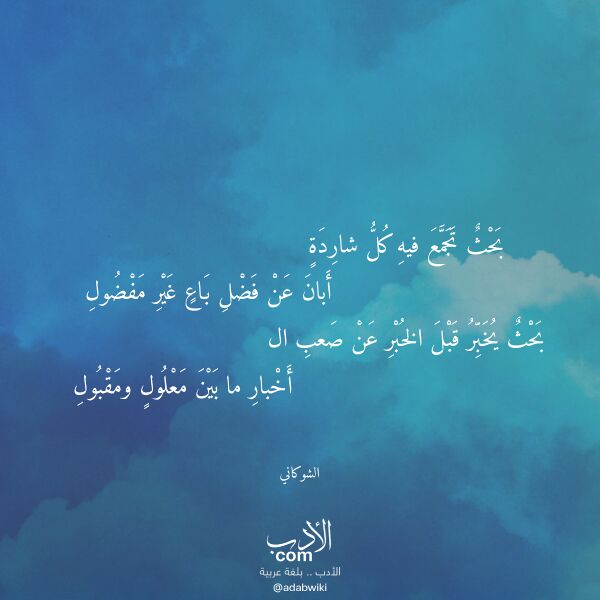 بَحْثٌ تَجَمَّعَ فيهِ كُلُّ شارِدَةٍ
أَبانَ عَنْ فَضْلِ بَاعٍ غَيْرِ مَفْضُولِ
بَحْثٌ يُخَبِّرُ قَبْلَ الخُبْرِ عَنْ صَعبِ ال
أَخْبارِ ما بَيْنَ مَعْلُولٍ ومَقْبُولِ
الشوكاني
الأدب
com
الأدب .. بلغة عربية
@adabwiki